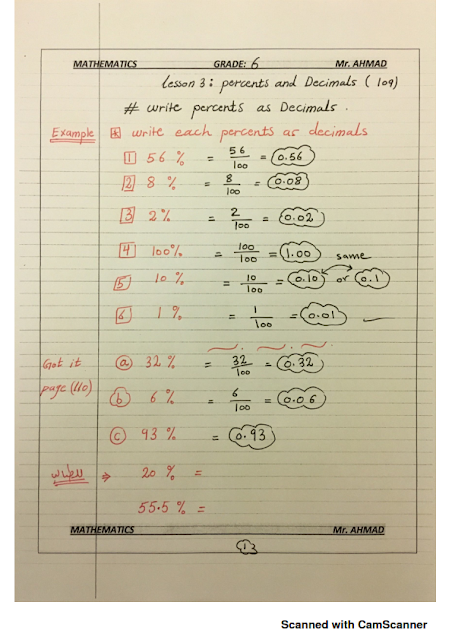 MATHEMATICS GRADE: 6 Mr. AHMAD
lesson 3 : percents and Decimals ( 109 )
# write percents as Decimals .
Example * write each percents as decimals
1 56 % = 56/100 = 0.56
2 8 % = 8/100 = 0.08
3 2% = 2/100 = 0.02
4 100% = 100/100 = 1.00 same
5 10 % = 10/100 = 0.10 or 0.1
6 1 % = 1/100 = 0.01
Got it
page (110)
a 32 % = 32/100 = 0.32
b 6 % = 6/100 = 0.06
c 93 % = 0.93
⇒ 20 % =
55.5 % =
MATHEMATICS Mr. AHMAD
13
Scanned with CamScanner